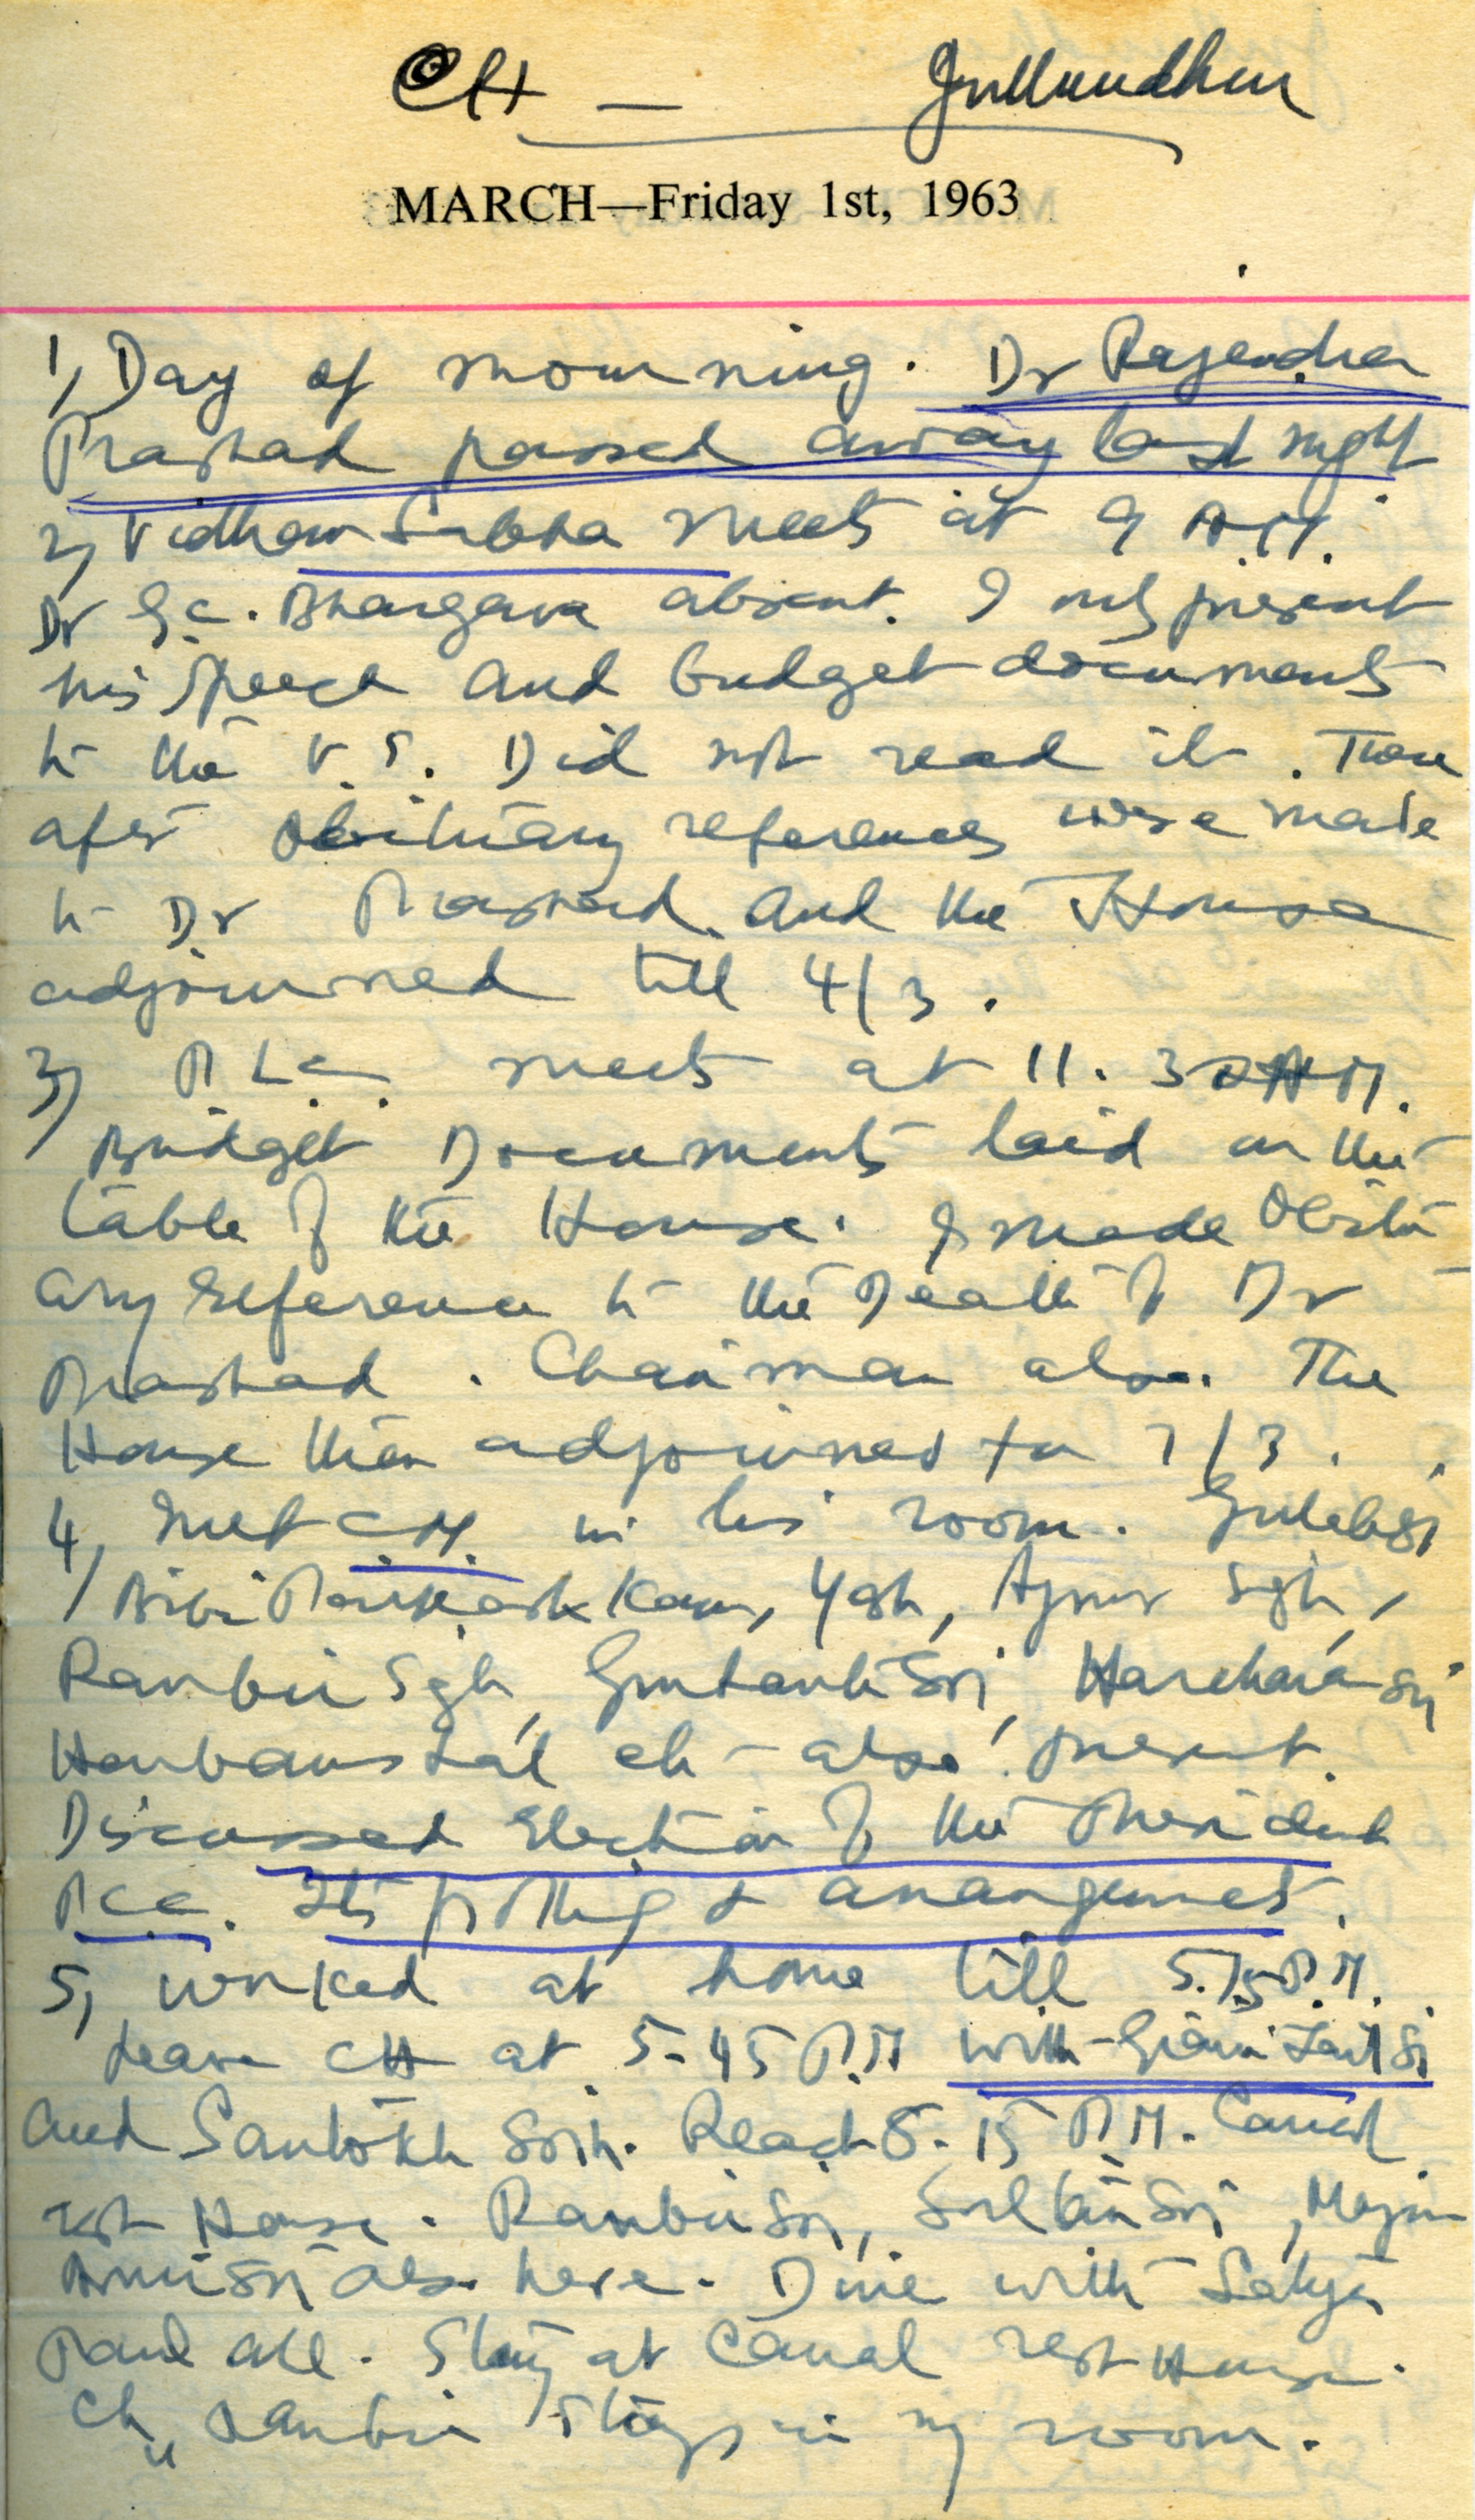 CH — Jullundhur
MARCH—Friday 1st, 1963
1, Day of mourning. Dr Rajendra
Prashad passed away last night
2, Vidhan Sabha meets at 9 A.M.
Dr G.C. Bhargava absent. I only present
his speech and budget documents
to the V.S. Did not read it. There
after obituary references were made
to Dr Prashad. and the House
adjourned till 4/3.
3, P.L.C. meets at 11.30 A.M.
Budget Documents laid on the
table of the House. I made Obitu
ary reference to the Death of Dr
Prashad. Chairman also. The
House then adjourned to 7/3.
4, Met C.M. in his room.
Bibi Parkash Kaur, Yash, Ajmer Sgh,
Ranbir Sgh, Gurbanta Sgh, Harcharan Sgh
Harbans Lal etc also present.
Discussed Election of the President
PCC. Its polling & arrangement.
5, worked at home till 5.15 P.M.
Leave CH at 5-45 P.M with Giani Zail S
and Santokh Sgh. Reach 8-15 P.M. Canal
rest House. Ranbir Sgh, Sultan Sgh, Major
Amir Sgh also here. Dine with Satya
Paul all. Stay at Canal rest House.
Ch Ranbir Stays in my room.